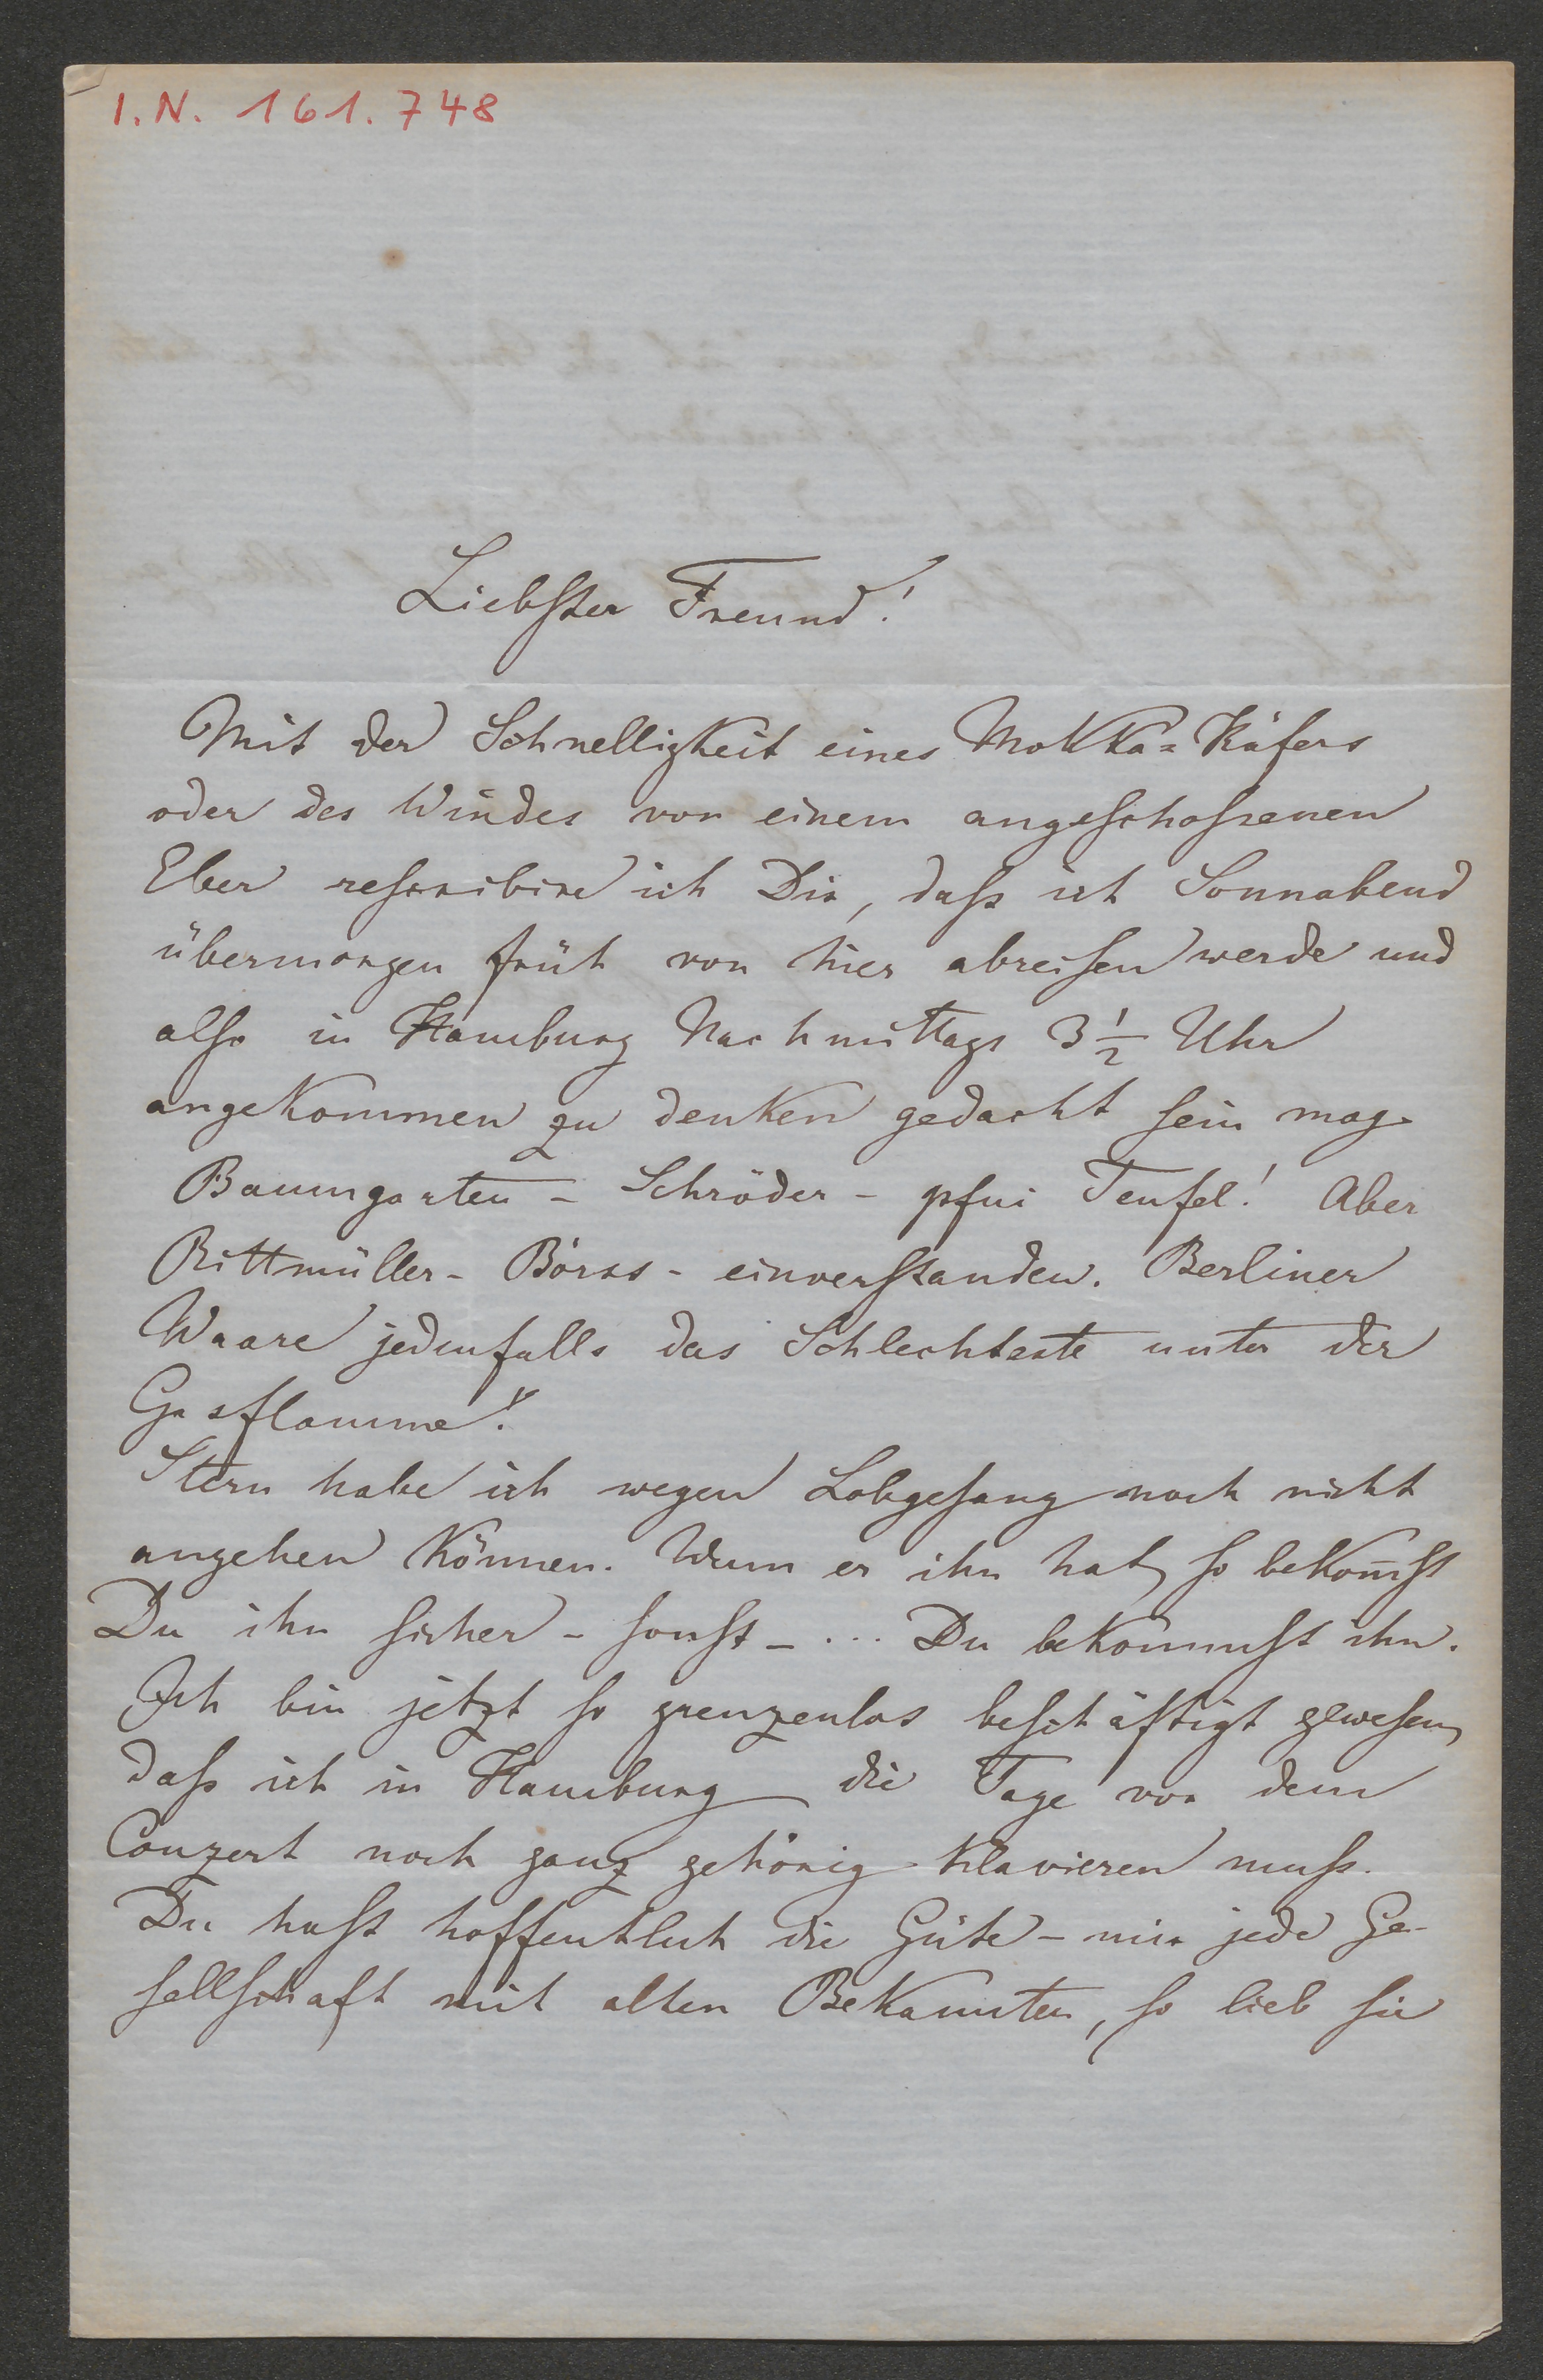 I.N. 161.748
Liebster Freund!
Mit der Schnelligkeit eines Mokka=Käfers
oder des Windes von einem angeschossenen
Eber rescribire ich Dir, dass ich Sonnabend
übermorgen früh von hier abreisen werde und
also in Hamburg Nachmittags 3 1/2 Uhr
angekommen zu denken gedacht sein mag.
Baumgarten - Schröder - pfui Teufel! Aber
Rittmüller - Börss - einverstanden. Berliner
Waare jedenfalls das Schlechteste unter der
Gasflamme!
Stern habe ich wegen Lobgesang noch nicht
angehen können. Wenn er ihn hat, so bekom̅st
Du ihn sicher - sonst - ... Du bekommst ihn.
Ich bin jetzt so grenzenlos beschäftigt gewesen,
dass ich in Hamburg die Tage vor dem
Conzert noch ganz gehörig klavieren muss.
Du hast hoffentlich die Güte - mir jede Ge-
sellschaft mit alten Bekannten, so lieb sie